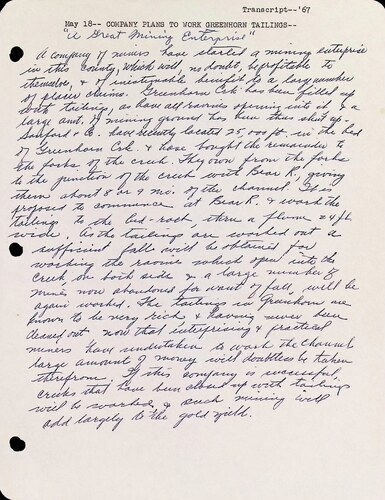 Transcript--'67
May 18-- COMPANY PLANS TO WORK GREENHORN TAILINGS--
"A Great Mining Enterprise"
A company of miners have started a mining enterprise
in this county, which will no doubt, be profitable to
themselves, & of inestimable benefit to a large number
of claims. Greenhorn Crk. has been filled up
with tailings, as have all ravines opening into it & a
large amt. of mining ground has been thus shut up.
Sanford & Co. have recently located 25,000 ft. in the bed
of Greenhorn Crk. & have bought the remainder to
the forks of the creek. They own from the forks
to the junction of the creek with Bear R., giving
them about 8 or 9 mi. of the channel. It is
proposed to commence at Bear R. & work the
tailings to the bed-rock, thru a flume 24 ft.
wide. As the tailings are worked out a
sufficient fall will be obtained for
washing the ravines which open into the
creek on both side & a large number of
mines now abandoned for want of fall, will be
again worked. The tailings in Greenhorn are
known to be very rich & having never been
cleaned out now that enterprising & practical
miners have undertaken to work the channel
large amount of money will doubtless be taken
therefrom. If this company is successful,
creeks that have been closed up with tailings
will be worked, & such mining will
add largely to the gold yield.